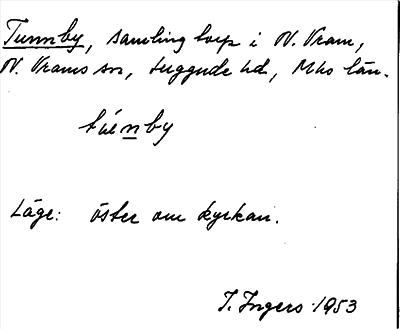 Tunnby, samling torp i N. Vram,
N. Vrams sn, Luggude hd, Mhs län.
túenby
Läge: öster om kyrkan.
I. Ingers 1953